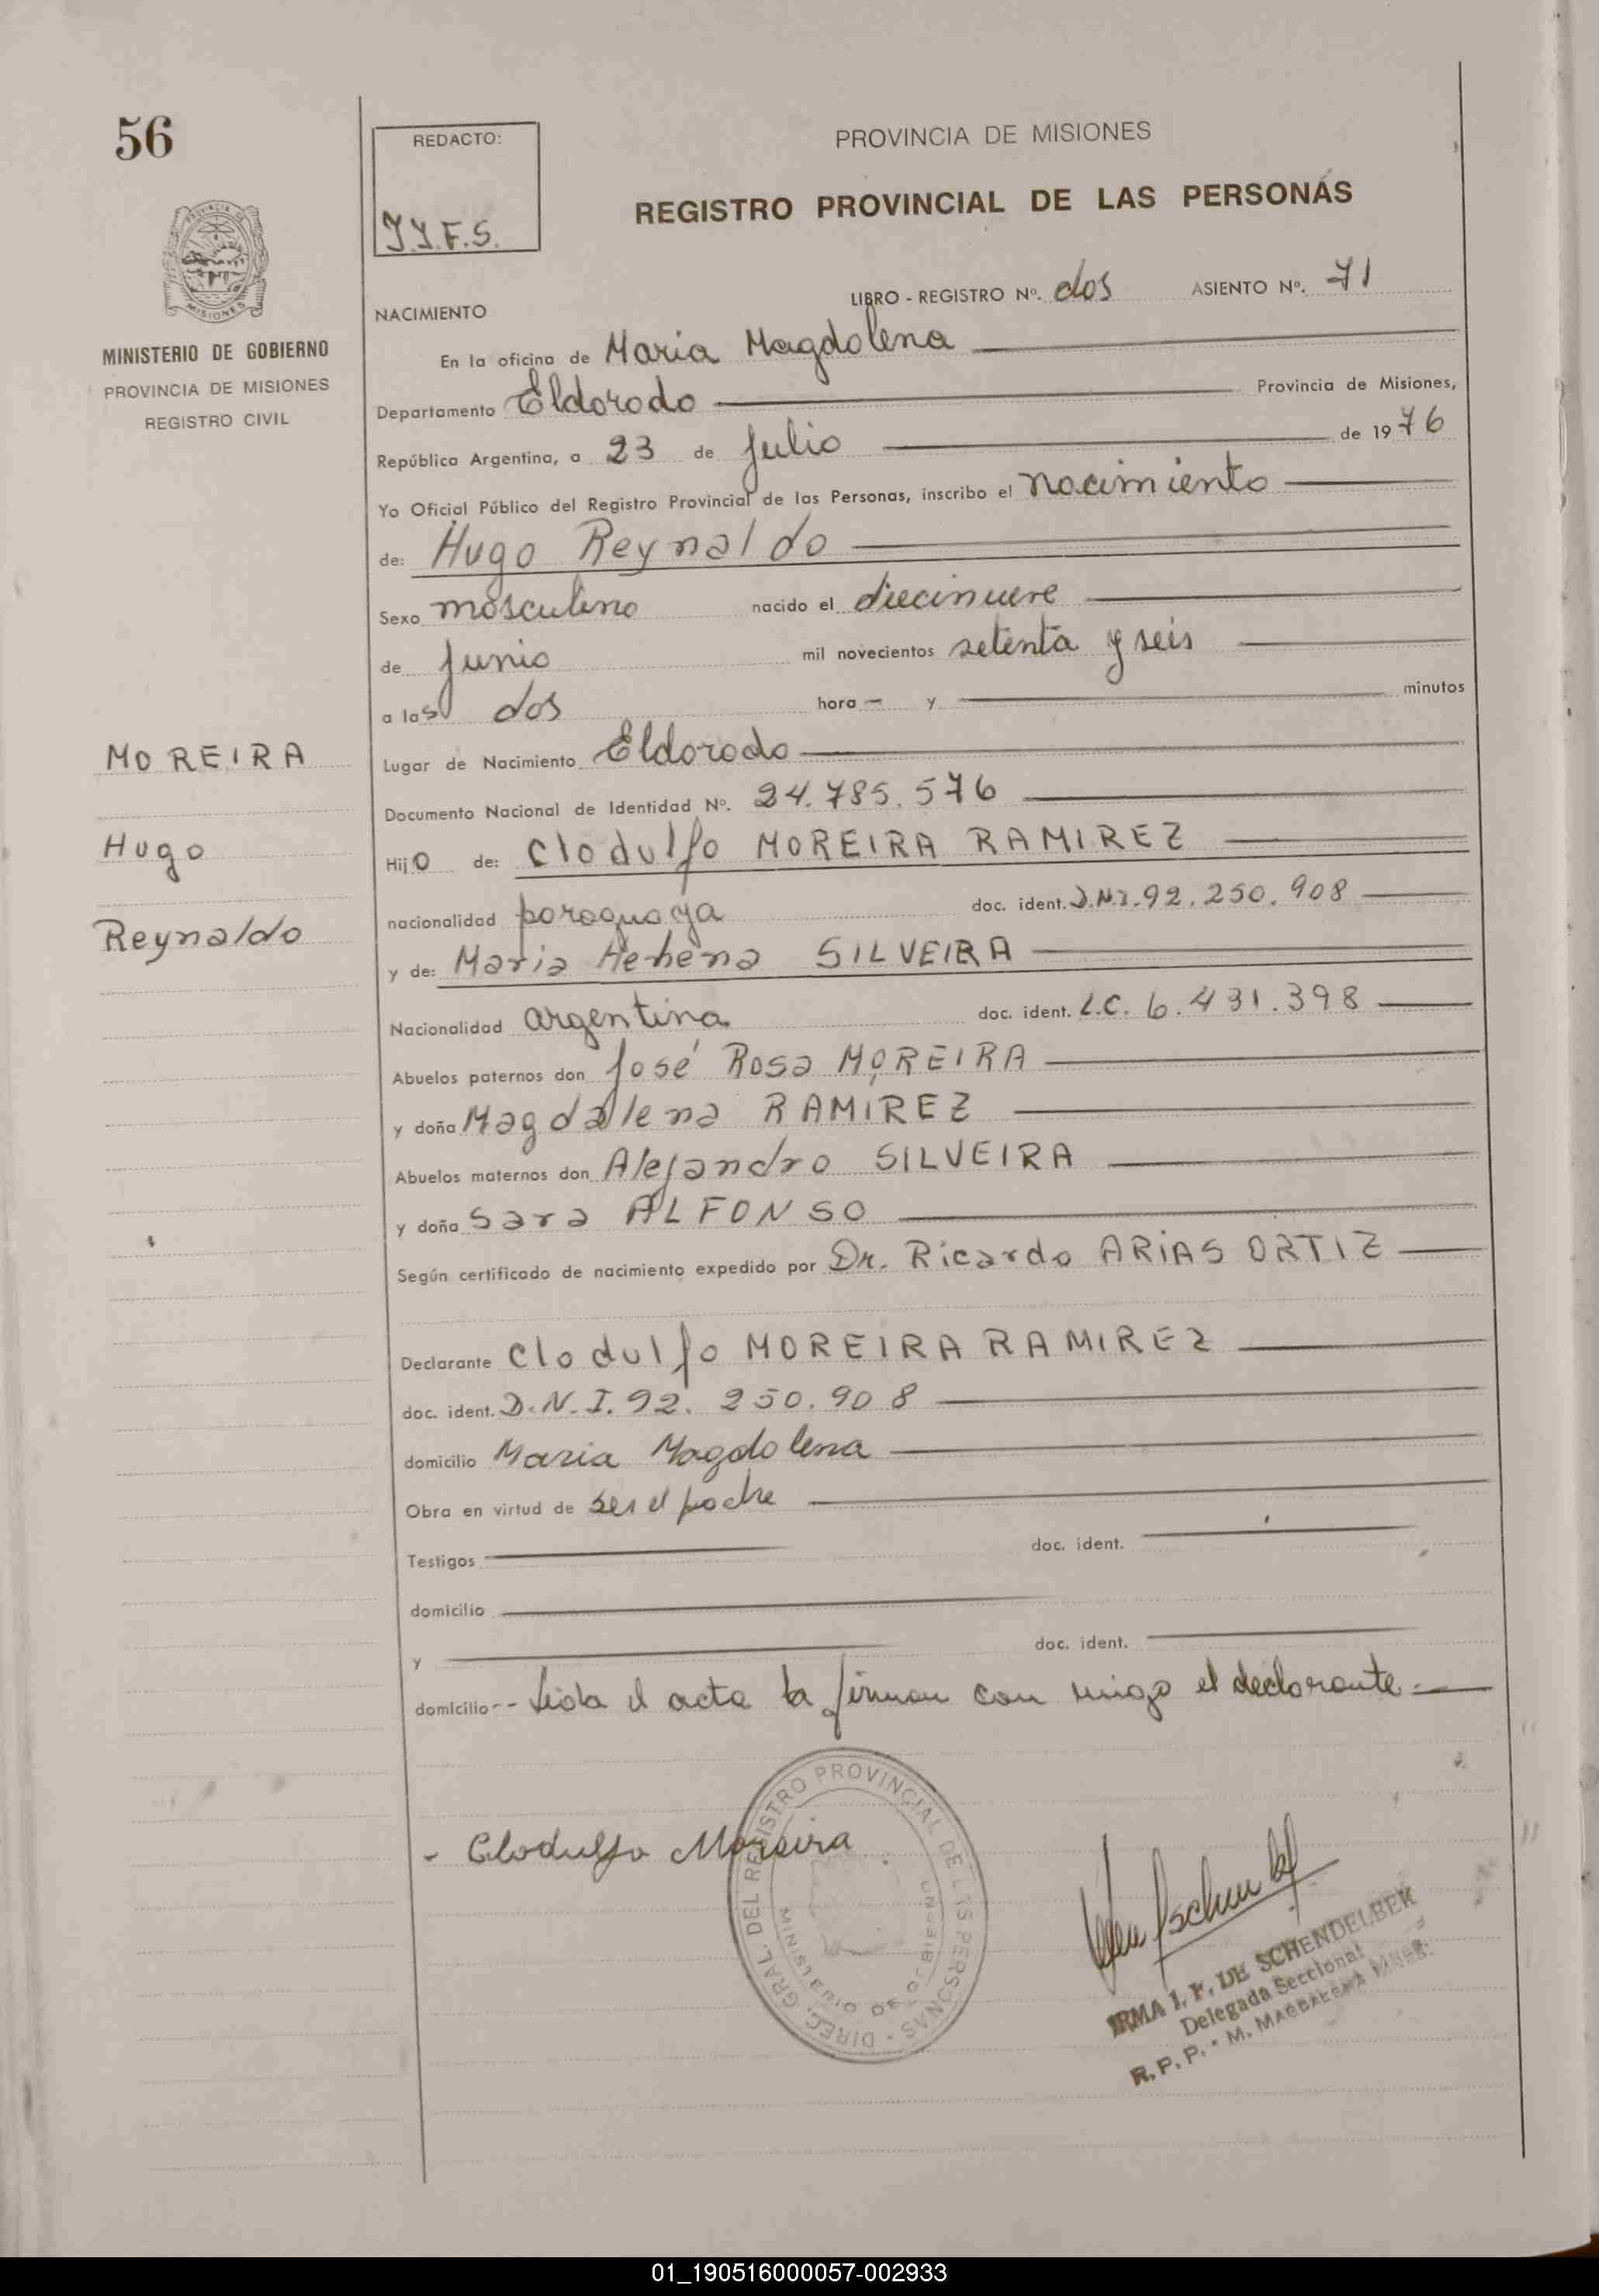 56
REDACTO:
PROVINCIA DE MISIONES
REGISTRO PROVINCIAL DE LAS PERSONAS
MINISTERIO DE GOBIERNO
PROVINCIA DE MISIONES
REGISTRO CIVIL
LIBRO - REGISTRO Nº. dos ASIENTO Nº. 71
NACIMIENTO
En la oficina de Maria Magdalena
Departamento Eldorado Provincia de Misiones,
República Argentina, a 23 de Julio de 1976
Yo Oficial Público del Registro Provincial de las Personas, inscribo el nacimiento
de: Hugo Reynaldo
Sexo masculino nacido el diecinueve
de Junio mil novecientos setenta y seis
a las dos hora — y minutos
MOREIRA
Lugar de Nacimiento Eldorado
Documento Nacional de Identidad Nº. 24.785.576
Hugo
Hijo de: Clodulfo MOREIRA RAMIREZ
nacionalidad paraguaya doc. ident. D.N.I. 92.250.908
Reynaldo
y de: Maria SILVEIRA
Nacionalidad argentina doc. ident. L.C. 6.431.398
Abuelos paternos don José Rosa MOREIRA
y doña Magdalena RAMIREZ
Abuelos maternos don Alejandro SILVEIRA
y doña Sara ALFONSO
Según certificado de nacimiento expedido por Dr. Ricardo ARIAS ORTIZ
Declarante Clodulfo MOREIRA RAMIREZ
doc. ident. D.N.I. 92.250.908
domicilio Maria Magdalena
Obra en virtud de ser el padre
Testigos doc. ident.
domicilio
y doc. ident.
domicilio -- Leida el acta la firman con migo el declarante.
- Clodulfo Moreira
DIREC. GRAL. DEL REGISTRO PROVINCIAL DE LAS PERSONAS
MINISTERIO DE GOBIERNO
IRMA I. F. DE SCHENDELBEK
Delegada Seccional
R.P.P. - M. MAGDALENA MNES.
01_190516000057-002933